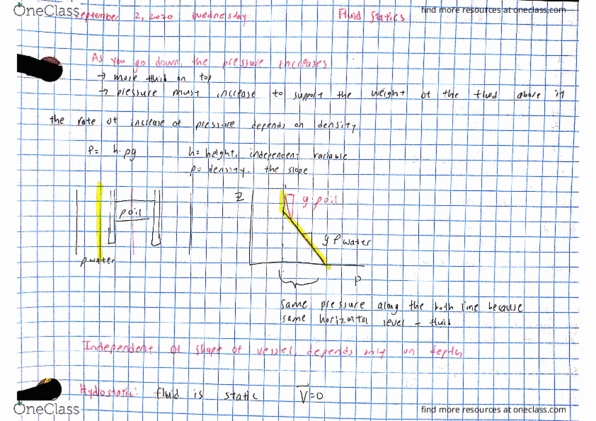 OneClass
find more resources at oneclass.com
September 2, 2020 Wednesday
Fluid Statics
As you go down, the pressure increases
→ more fluid on top
→ pressure must increase to support the weight of the fluid above it
the rate of increase of pressure depends on density
P= hρg
h= height, independent variable
ρ= density, the slope
ρoil
ρwater
z
g ρoil
g ρwater
P
same pressure along the both line because
same horizontal level - fluid
Independent of shape of vessel, depends only on depth
Hydostatic: fluid is static V=0
OneClass
find more resources at oneclass.com